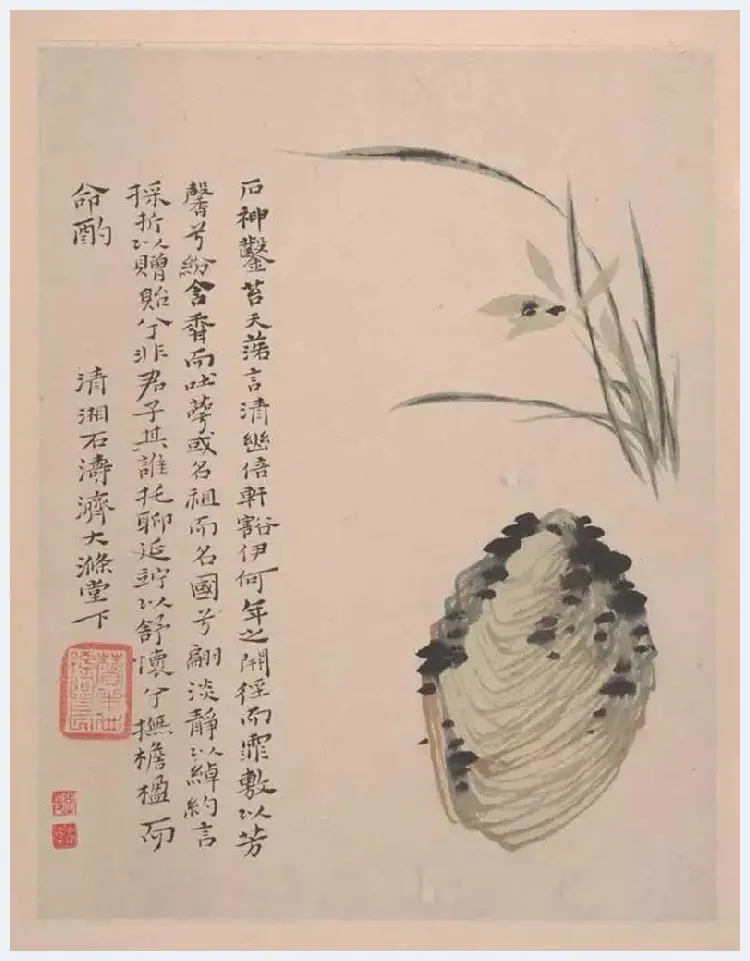 石神鑿苔天荒言清幽倍軒豁伊何年之開徑而霏敷以芳
馨兮紛含香而吐萼或名祖而名國兮翩淡靜以綽約言
採折以贈貽兮非君子其誰托聊延竚以舒懷兮撫檐楹而
命酌
清湘石濤濟大滌堂下